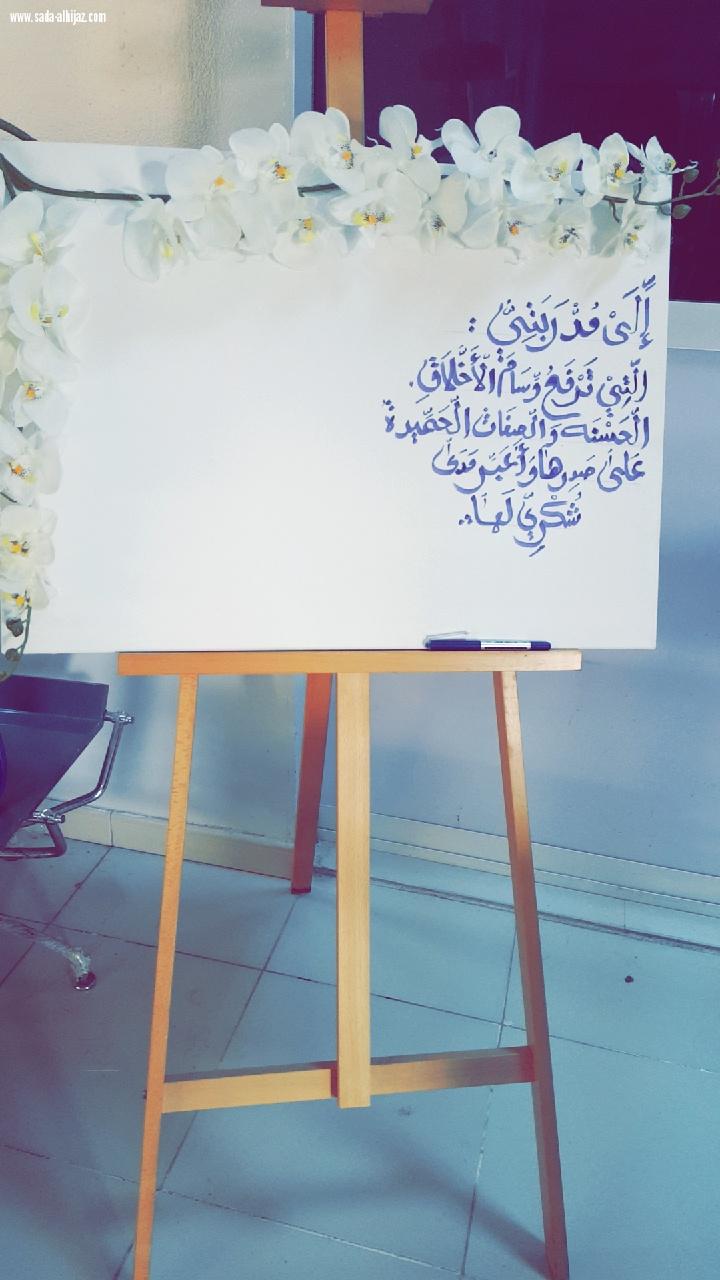 www.sada-alhijaz.com
إِلَىْ مُدَرِبَتِيْ :
الَّتِيْ تَرْفَعُ وِسَامَ الْأَخْلَاقِ.
الْحَسْنَه وَالْصِفَاتْ الْحَمِيْدِةْ
عَلَىْ صَدِرِهَا وَأُعَبِّر مَدَىْ
شُكْرِيْ لَهَا..